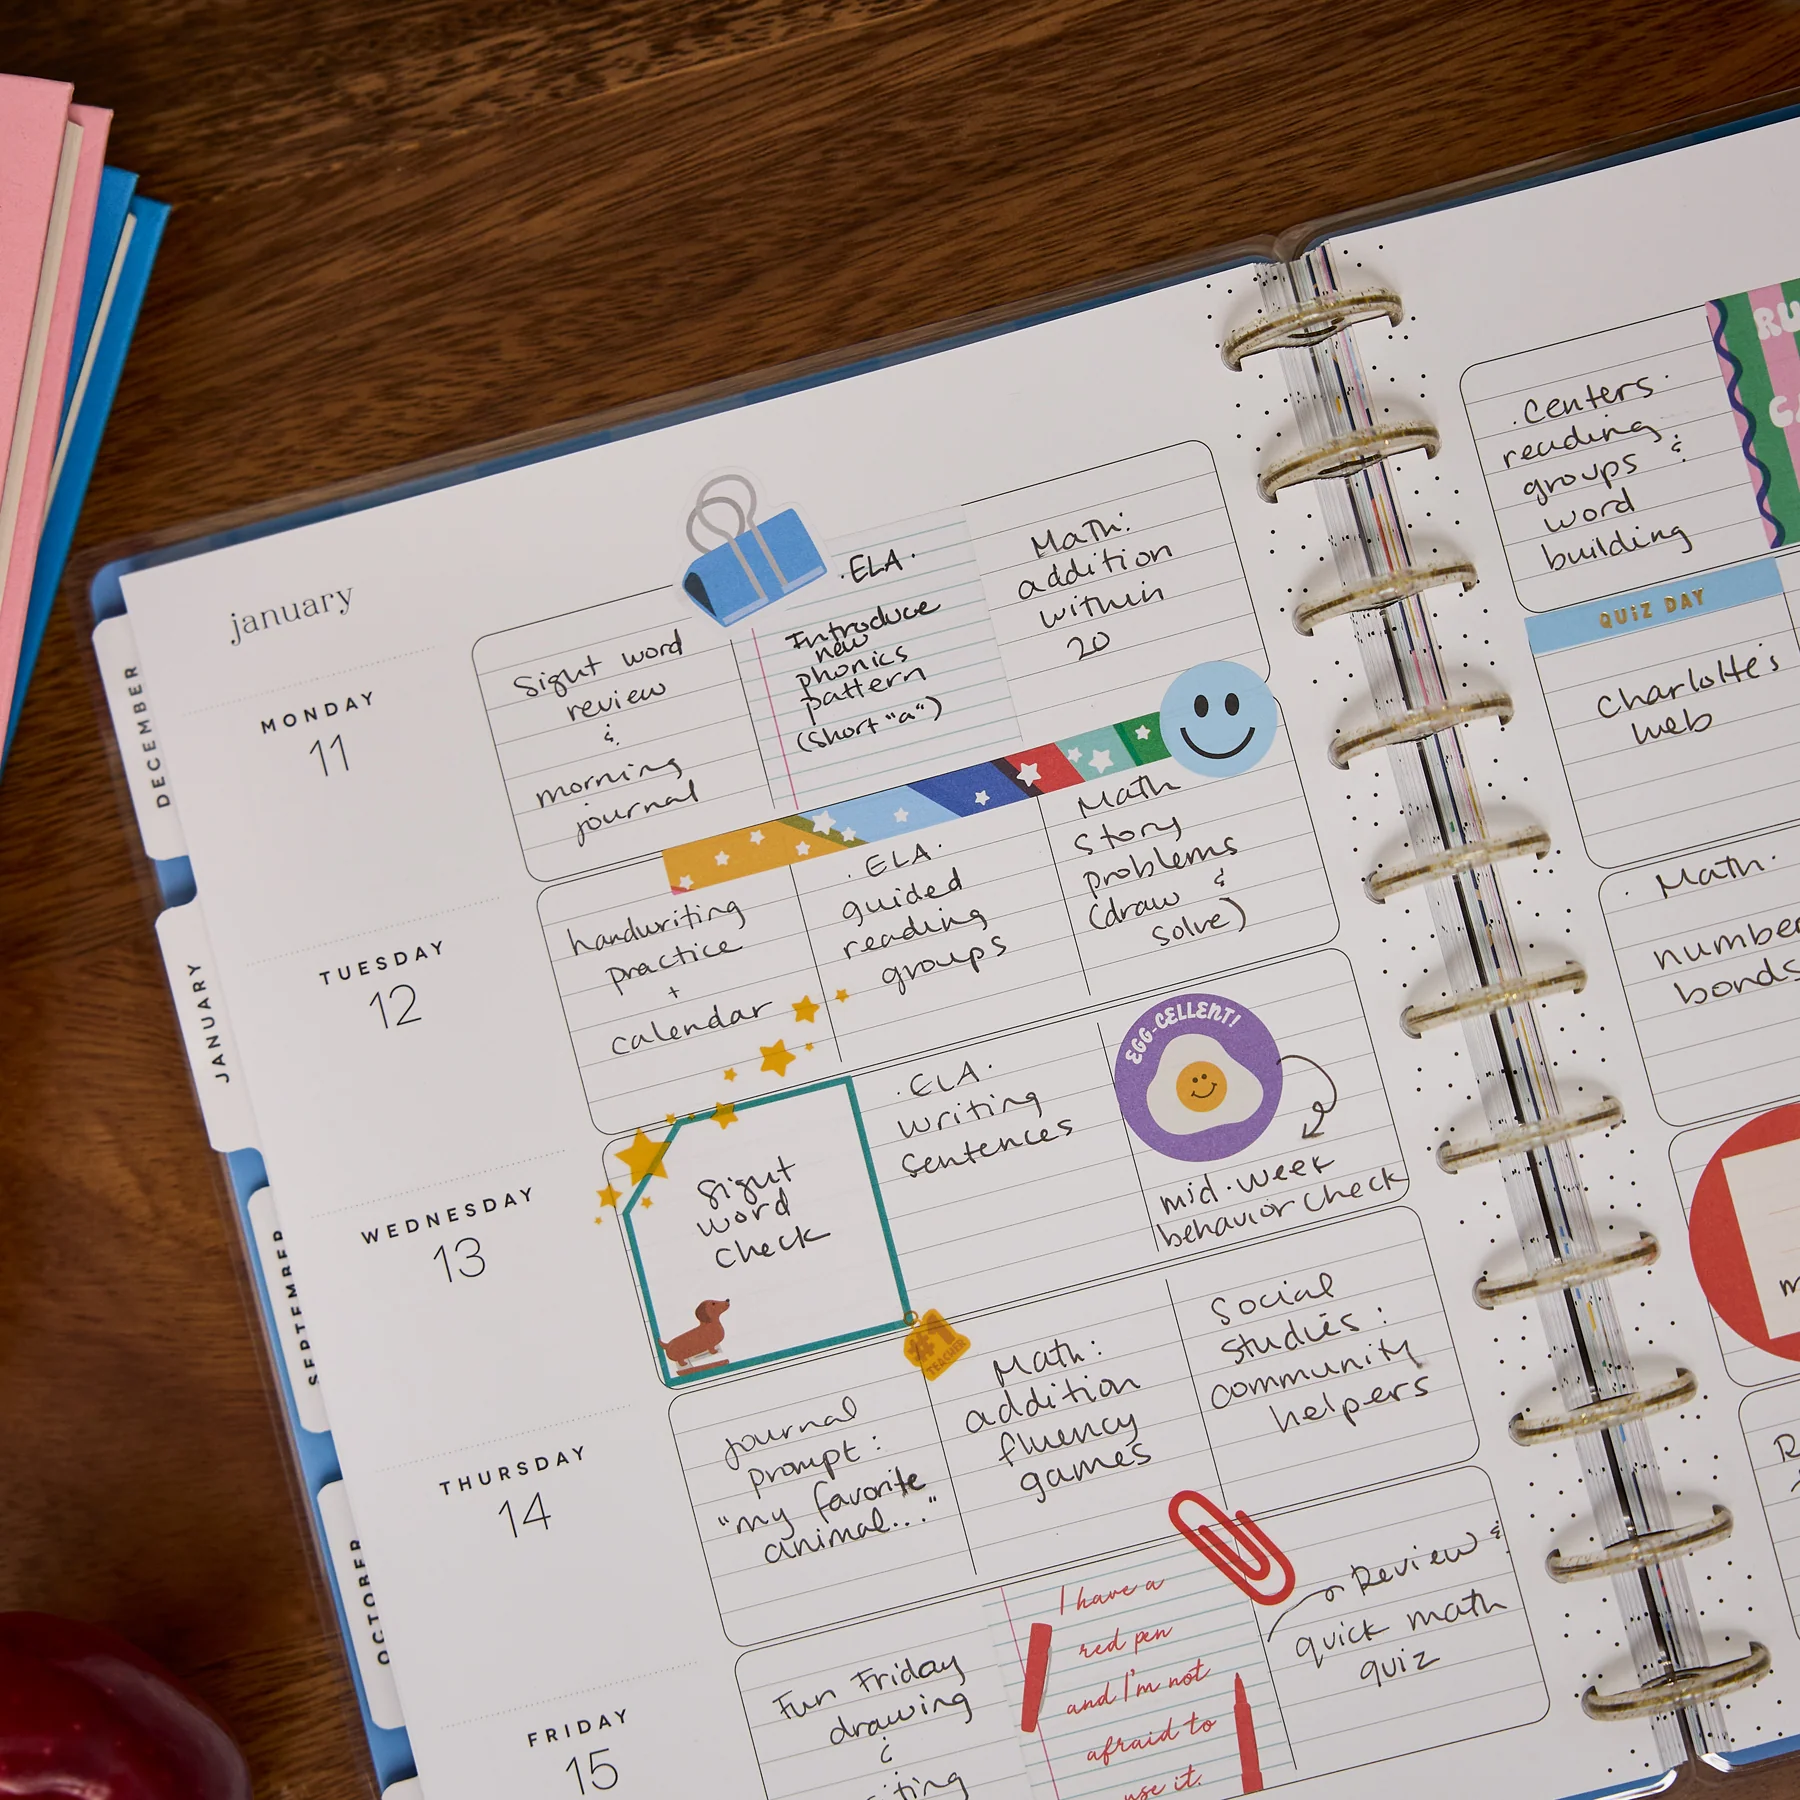 january
DECEMBER
JANUARY
SEPTEMBER
OCTOBER
MONDAY
11
Sight word
review
&
morning
journal
·ELA·
Introduce
new
phonics
pattern
(short "a")
Math:
addition
within
20
TUESDAY
12
handwriting
practice
+
calendar
·ELA·
guided
reading
groups
Math
story
problems
(draw &
solve)
WEDNESDAY
13
Sight
word
check
·ELA·
writing
sentences
EGG-CELLENT!
mid-week
behavior check
THURSDAY
14
journal
prompt:
"my favorite
animal..."
#1
TEACHER
Math:
addition
fluency
games
Social
Studies:
community
helpers
FRIDAY
15
Fun Friday
drawing
&
I have a
red pen
and I'm not
afraid to
use it.
Review &
quick math
quiz
·Centers·
reading
groups &
word
building
QUIZ DAY
Charlotte's
web
·Math·
number
bonds